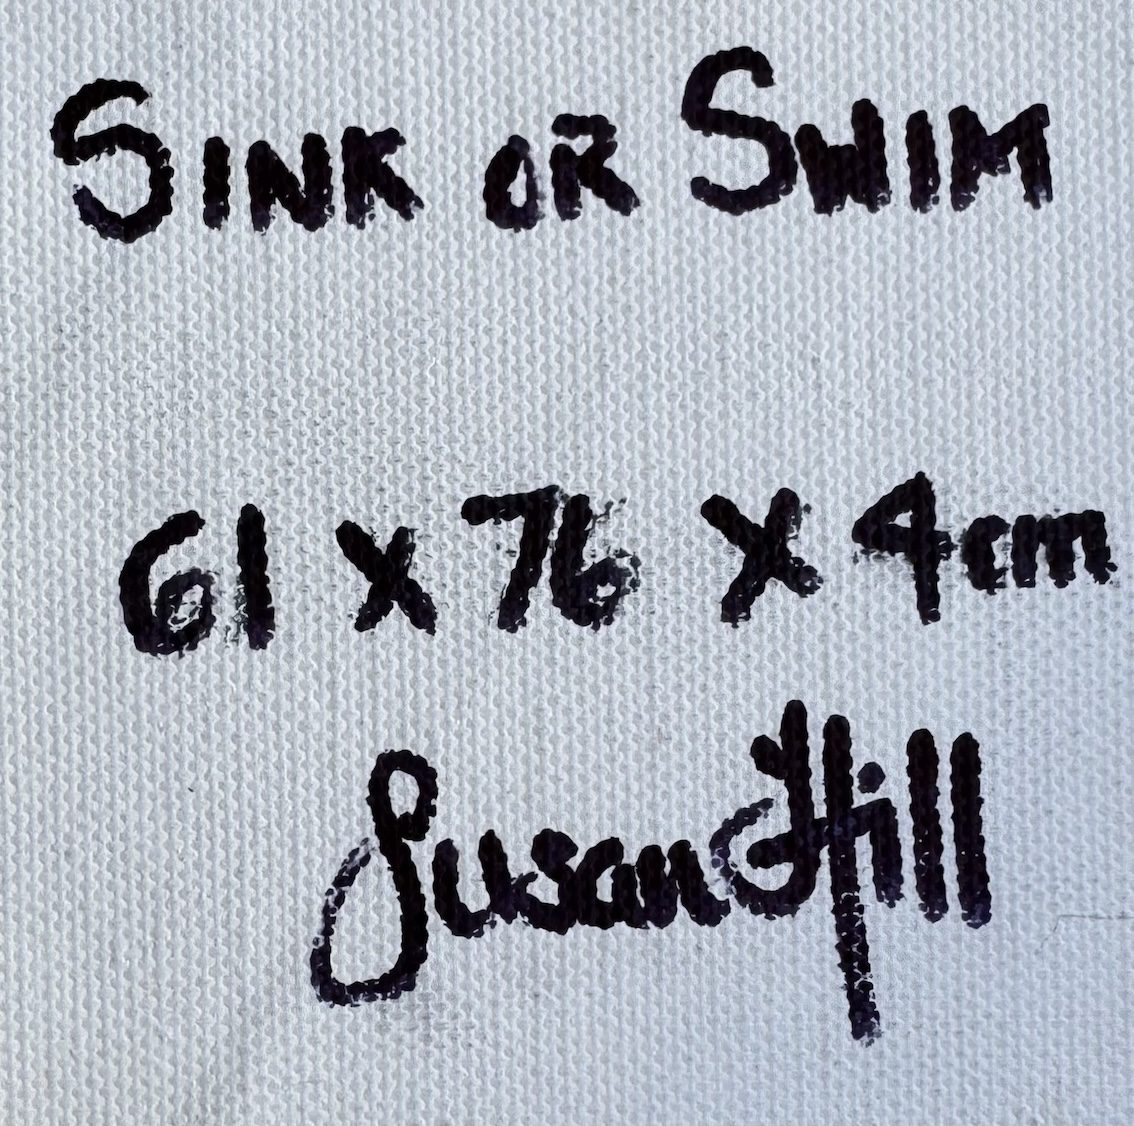 SINK OR SWIM
61 x 76 x 4cm
Susan Hill